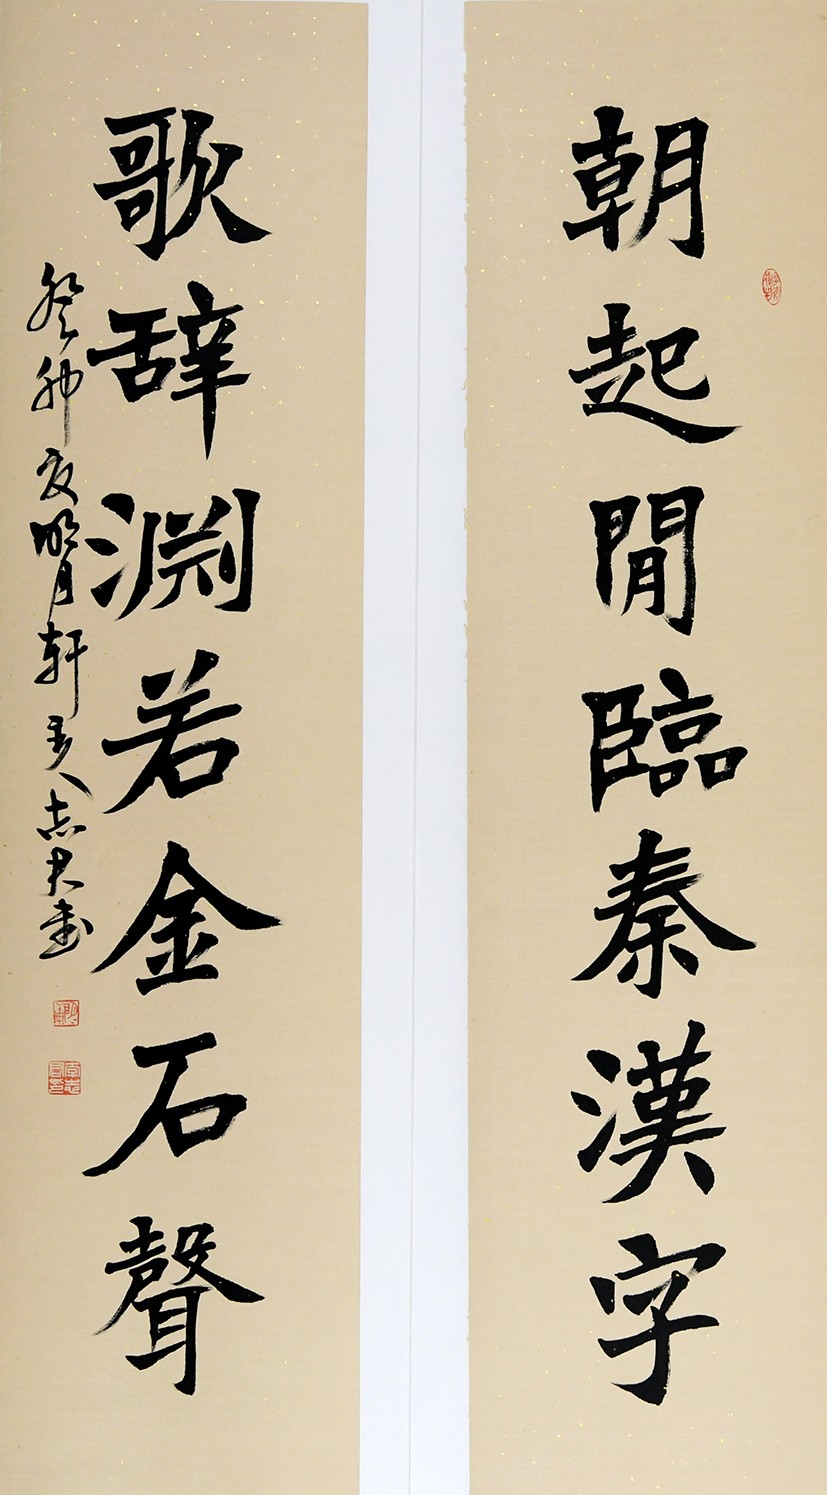 朝起閒臨秦漢字
歌辭淵若金石聲
癸卯夏明月軒主人志君書